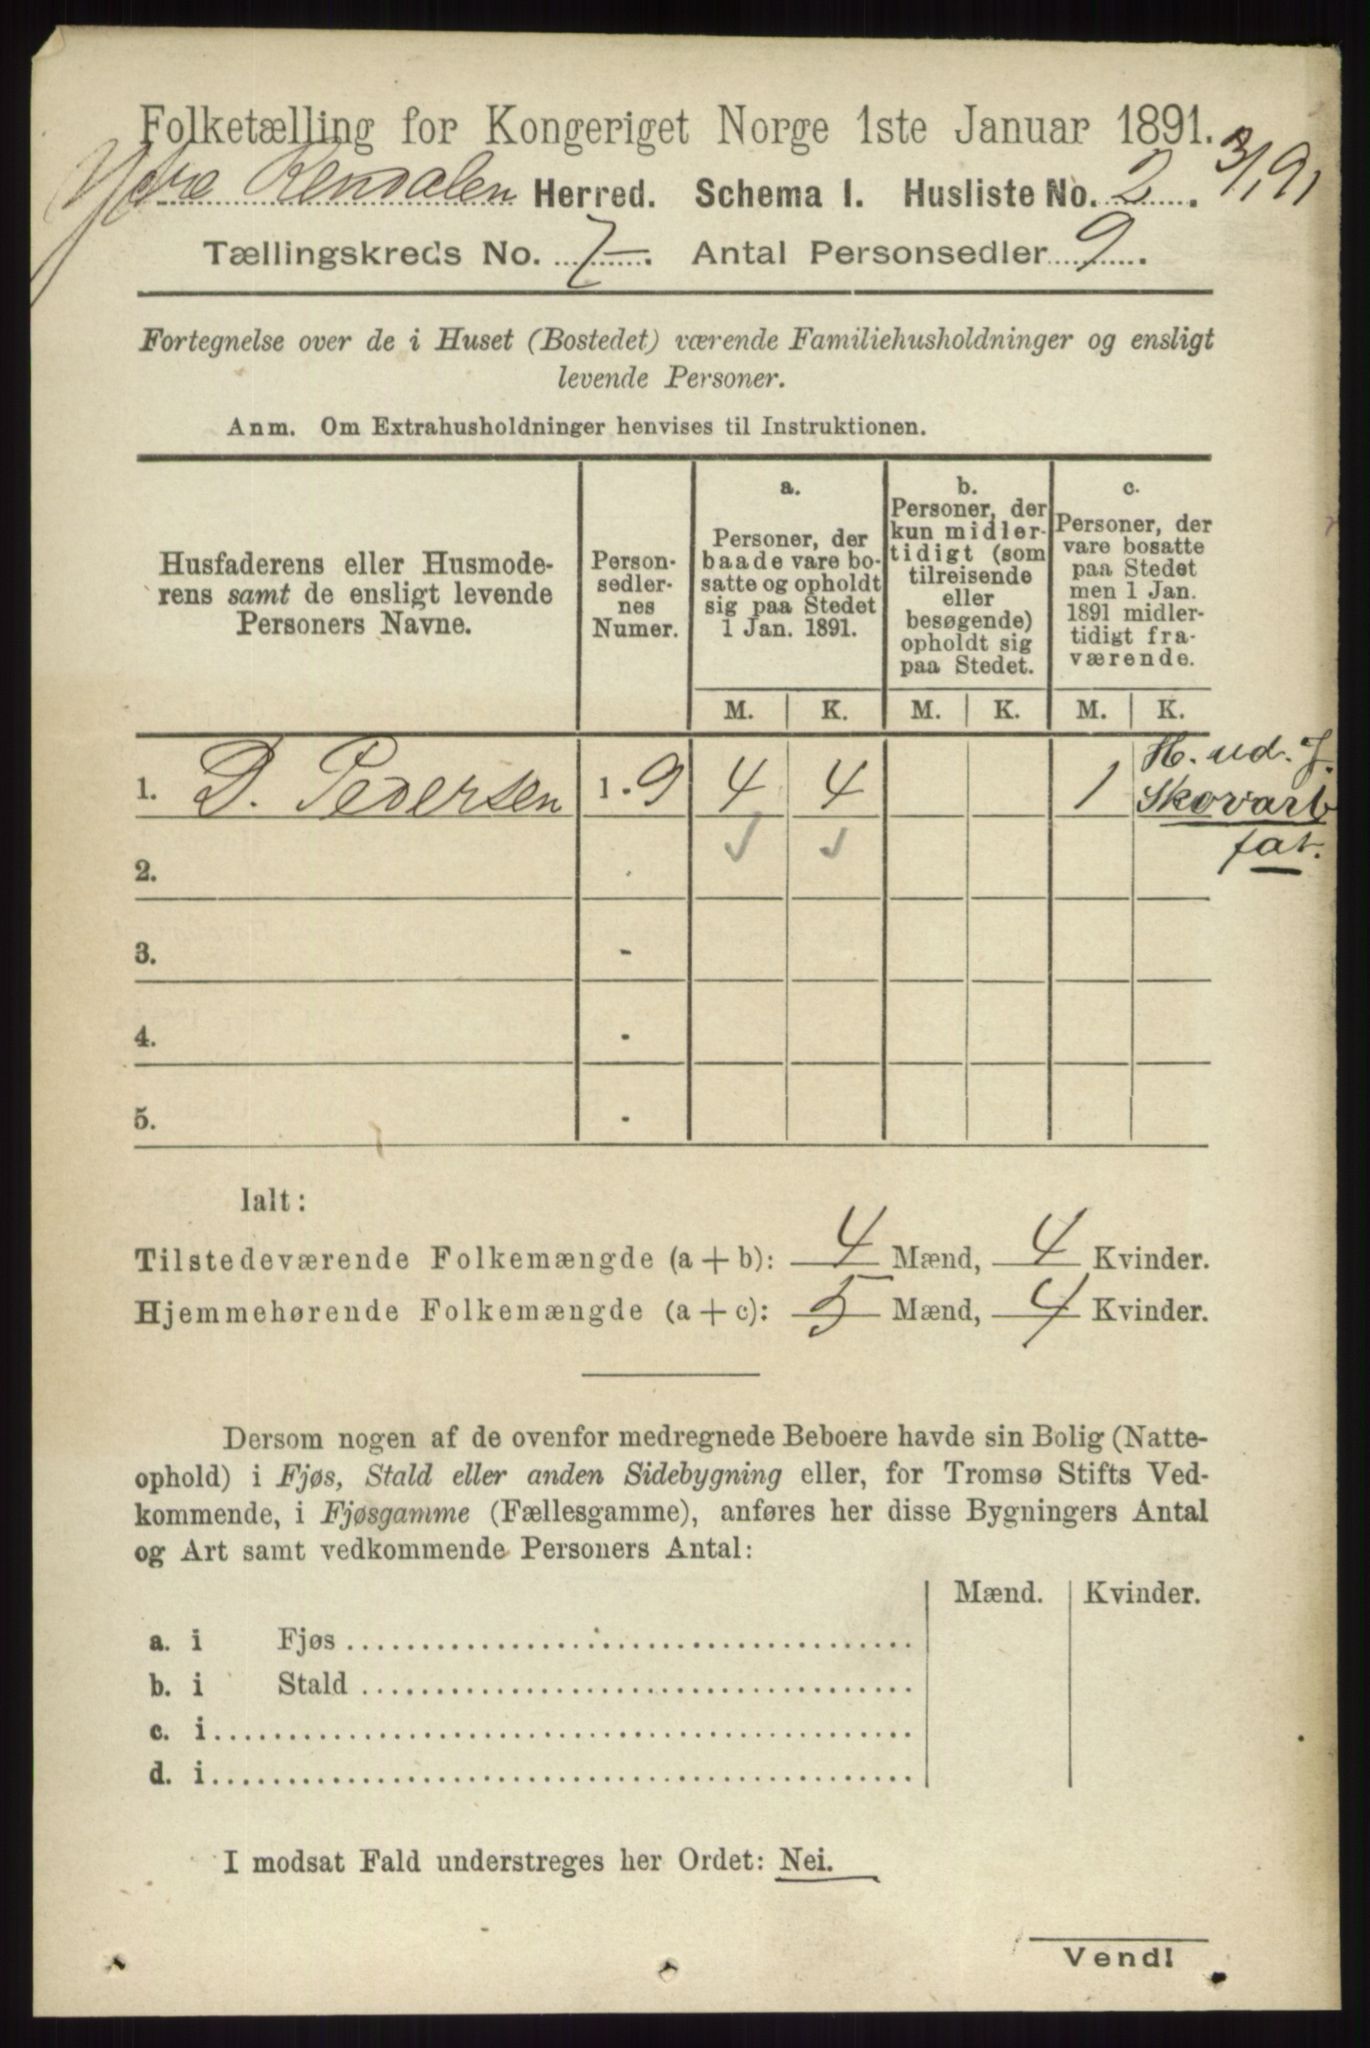 Folketælling for Kongeriget Norge 1ste Januar 1891.
Ytre Rendalen Herred. Schema I. Husliste No. 2. 3/1 91
Tællingskreds No. 7. Antal Personsedler 9.
Fortegnelse over de i Huset (Bostedet) værende Familiehusholdninger og ensligt
levende Personer.
Anm. Om Extrahusholdninger henvises til Instruktionen.
Husfaderens eller Husmode-
rens samt de ensligt levende
Personers Navne.
Person-
sedler-
nes
Numer.
a.
Personer, der
baade vare bo-
satte og opholdt
sig paa Stedet
1 Jan. 1891.
b.
Personer, der
kun midler-
tidigt (som
tilreisende
eller
besøgende)
opholdt sig
paa Stedet.
c.
Personer, der
vare bosatte
paa Stedet
men 1 Jan.
1891 midler-
tidigt fra-
værende.
M. K. M. K. M. K.
1. D. Pedersen 1 - 9 4 4 1 H. ud. J.
Skovarb
fat.
2.
3. -
4. -
5. -
Ialt:
Tilstedeværende Folkemængde (a + b): 4 Mænd, 4 Kvinder.
Hjemmehørende Folkemængde (a + c): 5 Mænd, 4 Kvinder.
Dersom nogen af de ovenfor medregnede Beboere havde sin Bolig (Natte-
ophold) i Fjøs, Stald eller anden Sidebygning eller, for Tromsø Stifts Ved-
kommende, i Fjøsgamme (Fællesgamme), anføres her disse Bygningers Antal
og Art samt vedkommende Personers Antal:
Mænd. Kvinder.
a. i Fjøs
b. i Stald
c. i
d. i
I modsat Fald understreges her Ordet: Nei.
Vend!